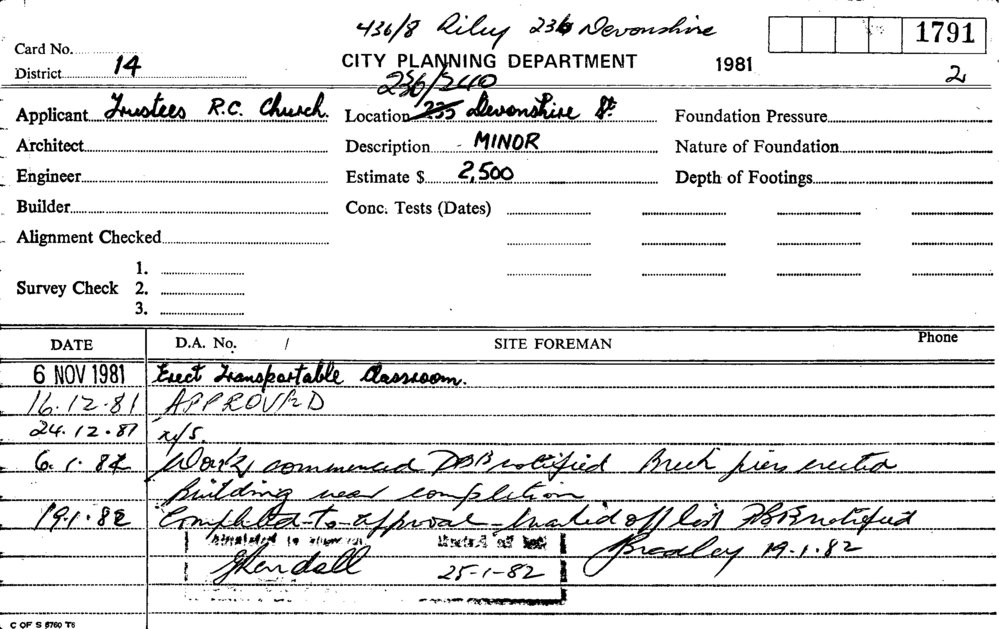 436/8 Riley 236 Devonshire
1791
Card No.
CITY PLANNING DEPARTMENT 1981
District 14 2
236/240
Applicant Trustees R.C. Church. Location 235 Devonshire St. Foundation Pressure
Architect Description MINOR Nature of Foundation
Engineer Estimate $ 2,500 Depth of Footings
Builder Conc. Tests (Dates)
Alignment Checked
1.
Survey Check 2.
3.
DATE D.A. No. / SITE FOREMAN Phone
6 NOV 1981 Erect Transportable Classroom.
16.12.81 APPROVED
24.12.81 n/s.
6.1.82 Work commenced DBB notified Brick piers erected
Building near completion
19.1.82 Completed to approval marked off list DBB notified
Completed to approval Marked off list Bradley 19.1.82
Kendall 25-1-82
C OF S 5760 T6